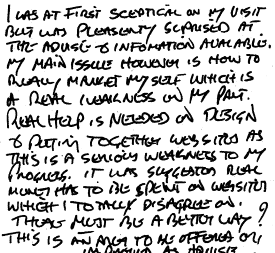 I WAS AT FIRST SCEPTICAL ON MY VISIT
BUT WAS PLEASENTLY SUPRISED AT
THE ADVISE & INFOMATION AVAILABLE.
MY MAIN ISSUE HOWEVER IS HOW TO
REALLY MARKET MYSELF WHICH IS
A REAL WEAKNESS ON MY PART.
REAL HELP IS NEEDED ON DESIGN
& PUTTING TOGETHER WEBSITES AS
THIS IS A SERIOUS WEAKNESS TO MY
PROGRESS. IT WAS SUGGESTED REAL
MONEY HAS TO BE SPENT ON WEBSITES
WHICH I TOTALLY DISAGREE ON.
THERE MUST BE A BETTER WAY?
THIS IS AN AREA TO BE OFFERED OR
AS ADVISE